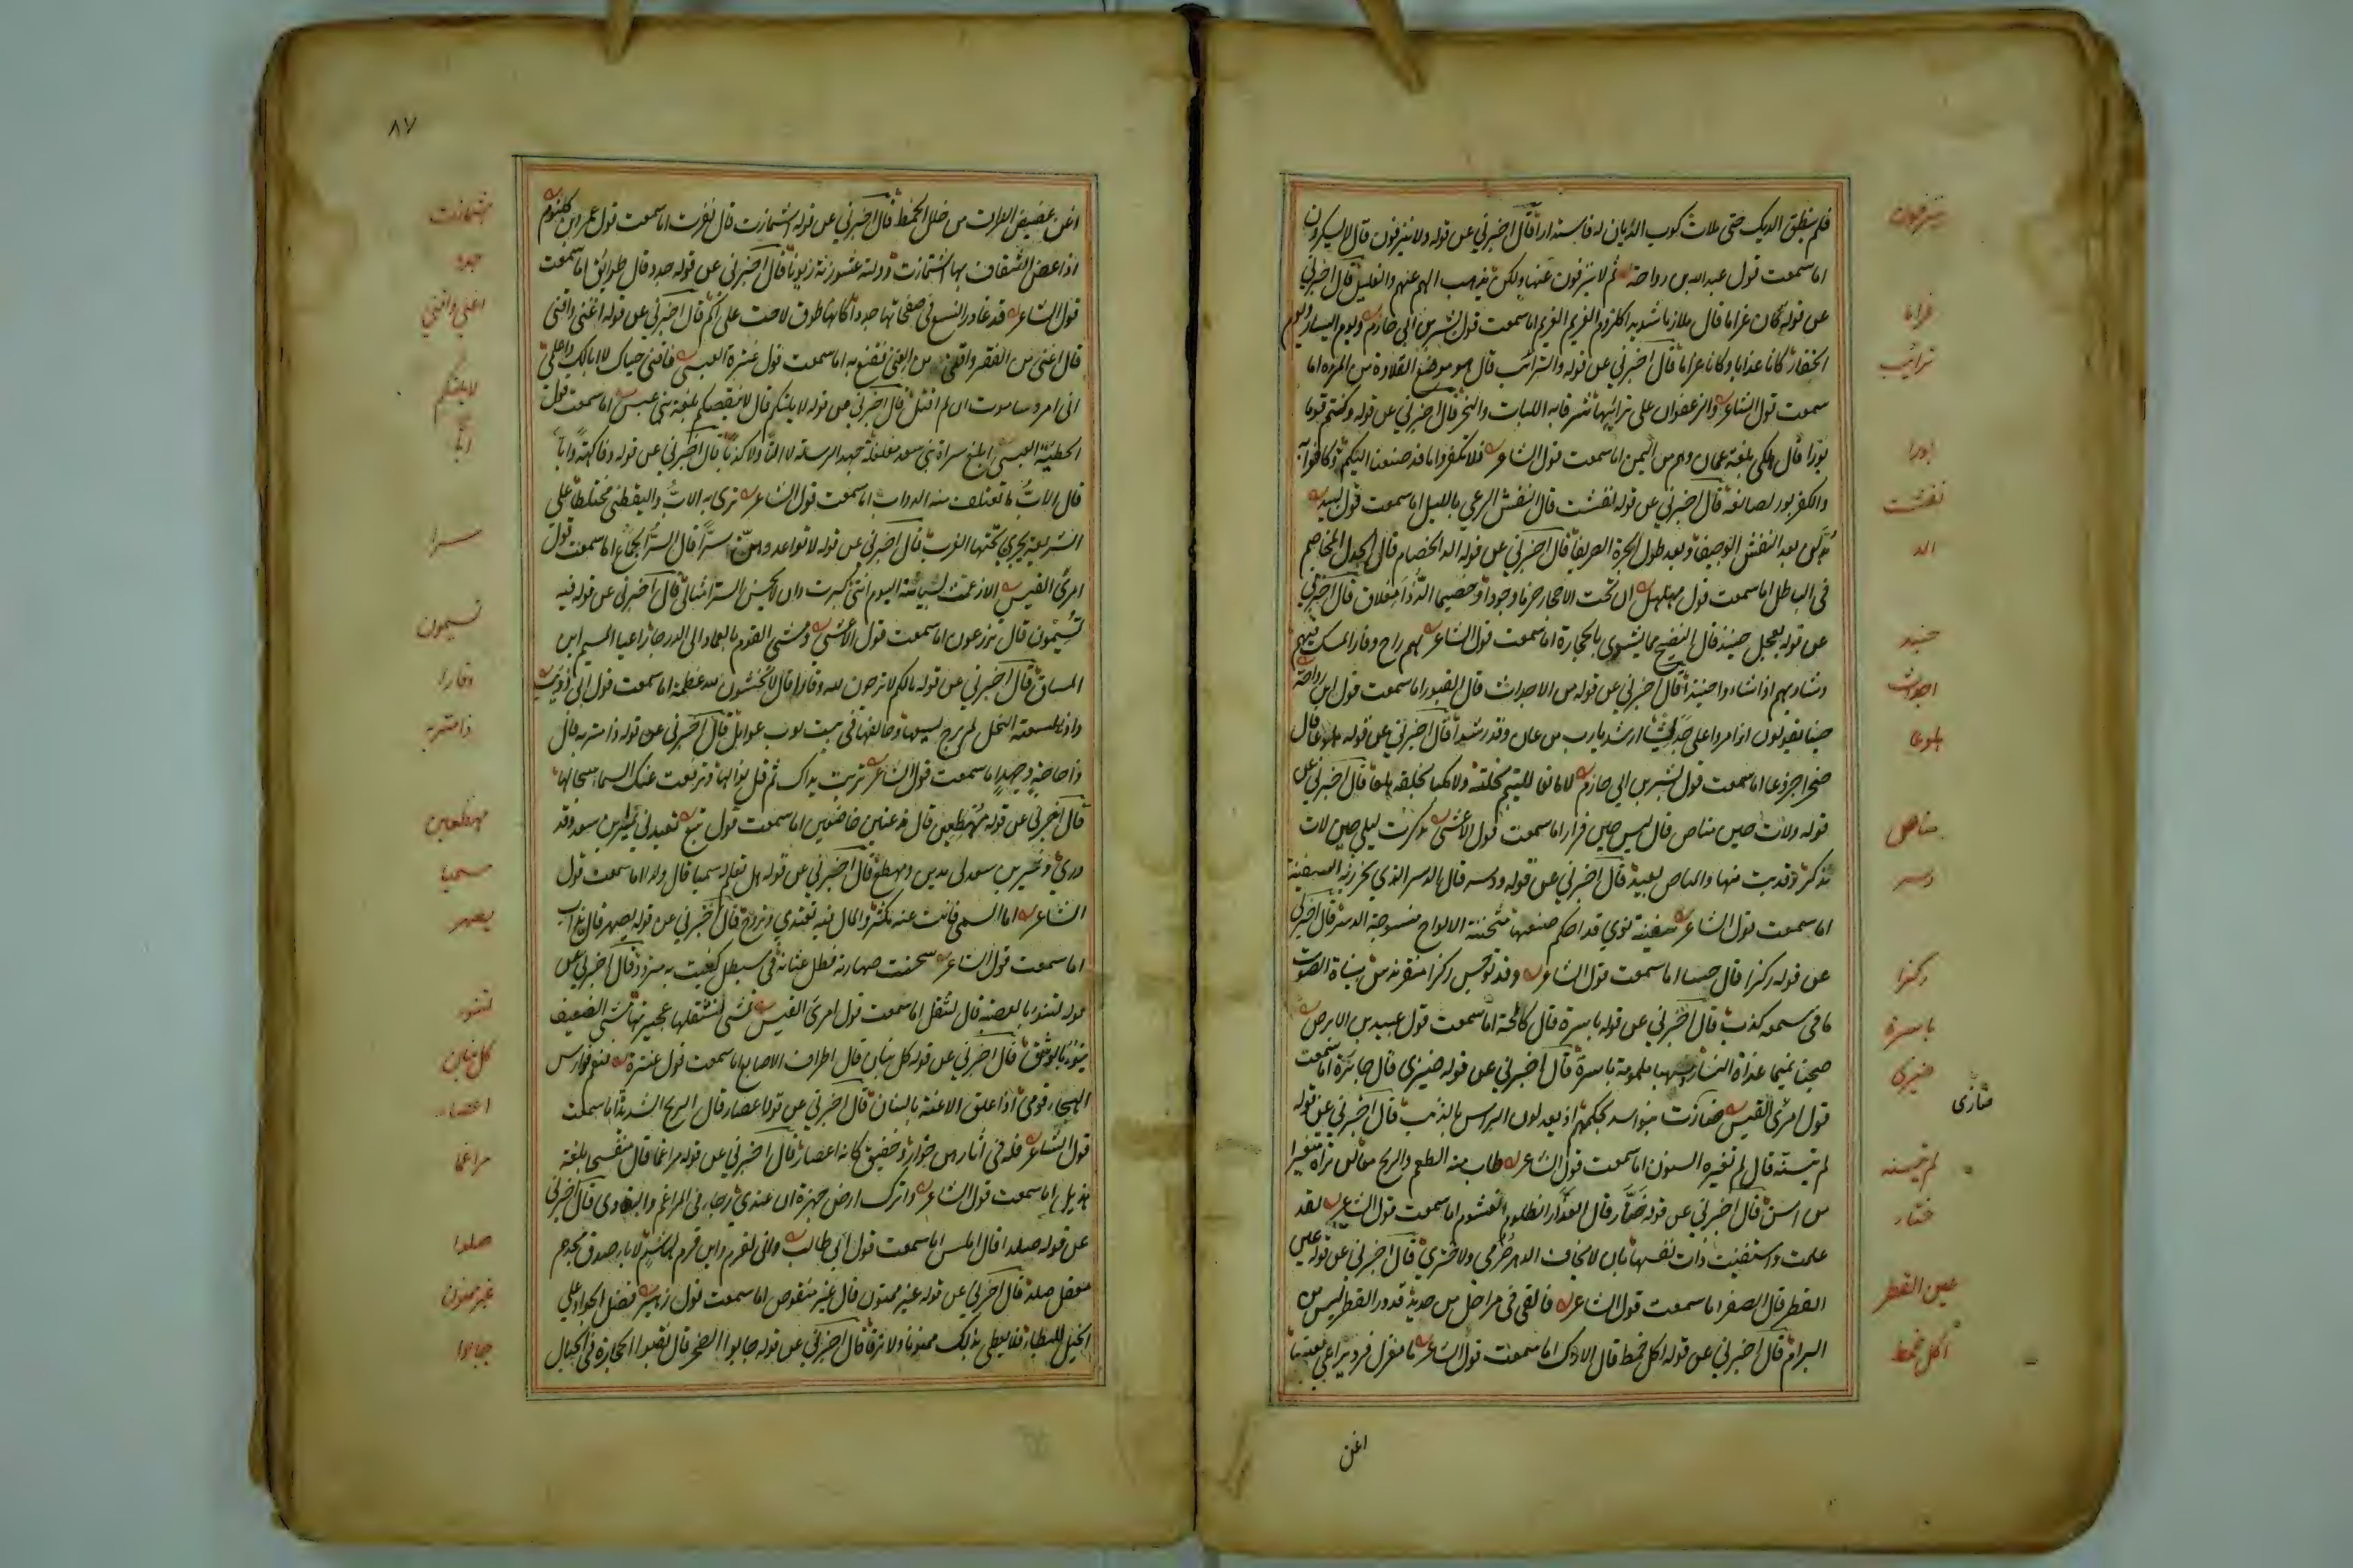 فلم ينطق الديك حتى ملات كوب الذباب له فاستدارا قال اخبرني عن قوله ولا ينزفون قال لا يسكرون
اما سمعت قول عبد الله بن رواحة ثم لا ينزفون عنها ولكن يذهب الهم عنهم والغليل قال اخبرني
عن قوله كان غراما قال ملازما شديدا كلزوم الغريم الغريم اما سمعت قول بشر بن ابي حازم ويوم النسار ويوم
الجفار كانا عذابا وكانا غراما قال اخبرني عن قوله والترائب قال هو موضع القلادة من المرءة اما
سمعت قول الشاعر والزعفران على ترائبها شرقا به اللبات والنحر قال اخبرني عن قوله وكنتم قوما
بورا قال هلكى بلغة عمان وهم من اليمن اما سمعت قول الشاعر فلا تكفروا ما قد صنعنا اليكم وكافوا به
والكفر بور لصانعه قال اخبرني عن قوله نفشت قال النفش الرعي بالليل اما سمعت قول لبيد
بدلن بعد النفش الوجيفا وبعد طول الجرة الصريفا قال اخبرني عن قوله الد الخصام قال الجدل المخاصم
في الباطل اما سمعت قول مهلهل ان تحت الاحجار حزما وجودا وخصيما الد ذا مغلاق قال اخبرني
عن قوله بعجل حنيذ قال النضيج مما يشوى بالحجارة اما سمعت قول الشاعر لهم راح وفار المسك فيهم
وشاويهم اذا شاءوا حنيذا قال اخبرني عن قوله من الاجداث قال القبور اما سمعت قول ابن رواحة
حينا يقولون اذا مروا على جدثي ارشد يا رب من عان وقد رشدا قال اخبرني عن قوله هلوعا قال
ضجرا جزوعا اما سمعت قول بشر بن ابي حازم لا مانعا لليتيم نحلته ولا مكبا لخلقه هلعا قال اخبرني عن
قوله ولات حين مناص قال ليس حين فرار اما سمعت قول الاعشى تذكرت ليلى حين لات
تذكر وقد بنت منها والمناص بعيد قال اخبرني عن قوله ودسر قال الدسر الذي تخرز به السفينة
اما سمعت قول الشاعر سفينة نوتي قد احكم صنعها مثخنة الالواح منسوجة الدسر قال اخبرني
عن قوله ركزا قال حسا اما سمعت قول الشاعر وقد توجس ركزا مقفر ندس بنباة الصوت
ما في سمعه كذب قال اخبرني عن قوله باسرة قال كالحة اما سمعت قول عبيد بن الابرص
صبحنا تميما غداة النسار شهبا ملمومة باسرة قال اخبرني عن قوله ضيزى قال جائزة اما سمعت
قول امرئ القيس ضازت بنو اسد بحكمهم اذ يعدلون الراس بالذنب قال اخبرني عن قوله
لم يتسنه قال لم تغيره السنون اما سمعت قول الشاعر طاب منه الطعم والريح معا لن تراه متغيرا
من اسن قال اخبرني عن قوله ختار قال الغدار الظلوم الغشوم اما سمعت قول الشاعر لقد
علمت واستيقنت ذات نفسها بان لا تخاف الدهر صرمي ولا ختري قال اخبرني عن قوله عين
القطر قال الصفر اما سمعت قول الشاعر فالقى في مراجل من حديد قدور القطر ليس من
البرام قال اخبرني عن قوله اكل خمط قال الاراك اما سمعت قول الشاعر ما مغزل فرد تراعي بعينها
اغن
ينزفون
غراما
ترائب
بورا
نفشت
الد
حنيذ
اجداث
هلوعا
مناص
دسر
ركزا
باسرة
ضيزى
ضازى
لم يتسنه
ختار
عين القطر
اكل خمط
٨٧
اغن غضيض الطرف من خلل الخمط قال اخبرني عن قوله اشمازت قال نفرت اما سمعت قول عمرو بن كلثوم
اذا عض الثقاف بها اشمازت وولته عشوزنة زبونا قال اخبرني عن قوله جدد قال طرائق اما سمعت
قول الشاعر قد غادر النسع في صفحاتها جددا كانها طرق لاحت على اكم قال اخبرني عن قوله اغنى واقنى
قال اغنى من الفقر واقنى من الغنى فقنع به اما سمعت قول عنترة العبسي فاقني حياءك لا ابا لك واعلمي
اني امرء ساموت ان لم اقتل قال اخبرني عن قوله لا يلتكم قال لا ينقصكم بلغة بني عبس اما سمعت قول
الحطيئة العبسي ابلغ سراة بني سعد مغلغلة جهد الرسالة لا التا ولا كذبا قال اخبرني عن قوله وفاكهة وابا
قال الاب ما تعتلف منه الدواب اما سمعت قول الشاعر ترى به الاب واليقطين مختلطا على
الشريعة يجري تحتها الغرب قال اخبرني عن قوله لا تواعدوهن سرا قال السر الجماع اما سمعت قول
امرئ القيس الا زعمت بسباسة اليوم انني كبرت وان لا يحسن السر امثالي قال اخبرني عن قوله فيه
تسيمون قال ترعون اما سمعت قول الاعشى ومشى القوم بالعماد الى الدرحاء اعيا المسيم اين
المساق قال اخبرني عن قوله مالكم لا ترجون لله وقارا قال لا تخشون لله عظمة اما سمعت قول ابي ذويب
اذا لسعته النحل لم يرج لسعها وحالفها في بيت نوب عوامل قال اخبرني عن قوله ذا متربة قال
ذا حاجة وجهد اما سمعت قول الشاعر تربت يداك ثم قل نوالها وترفعت عنك السماء سحالها
قال اخبرني عن قوله مهطعين قال مذعنين خاضعين اما سمعت قول تبع تعبدني نمر بن سعد وقد
درى ونمر بن سعد لي مدين ومهطع قال اخبرني عن قوله هل تعلم له سميا قال ولدا اما سمعت قول
الشاعر اما السمي فانت عنه مكثر والمال فيه تغتدي وتروح قال اخبرني عن قوله يصهر قال يذاب
اما سمعت قول الشاعر سخنت صهارته فظل عثانه في سيطل كفيت به يتردد قال اخبرني عن
قوله لتنوء بالعصبة قال لتثقل اما سمعت قول امرئ القيس تمشي فتثقلها عجيزتها مشي الضعيف
ينوء بالوسق قال اخبرني عن قوله كل بنان قال اطراف الاصابع اما سمعت قول عنترة فنعم فوارس
الهيجاء قومي اذا علق الاعنة بالبنان قال اخبرني عن قوله اعصار قال الريح الشديدة اما سمعت
قول الشاعر فله في اثارهن خوار وحفيف كانه اعصار قال اخبرني عن قوله مراغما قال منفسحا بلغة
هذيل اما سمعت قول الشاعر واترك ارض جهرة ان عندي رجاء في المراغم والتعادي قال اخبرني
عن قوله صلدا قال املس اما سمعت قول ابي طالب واني لقرم وابن قرم لهاشم لاباء صدق مجدهم
معقل صلد قال اخبرني عن قوله غير ممنون قال غير منقوص اما سمعت قول زهير فضل الجواد على
الخيل البطاء فلا يعطي بذلك ممنونا ولا نزقا قال اخبرني عن قوله جابوا الصخر قال نقبوا الحجارة في الجبال
اشمازت
جدد
اغنى واقنى
لا يلتكم
ابا
سرا
تسيمون
وقارا
ذا متربة
مهطعين
سميا
يصهر
لتنوء
كل بنان
اعصار
مراغما
صلدا
غير ممنون
جابوا